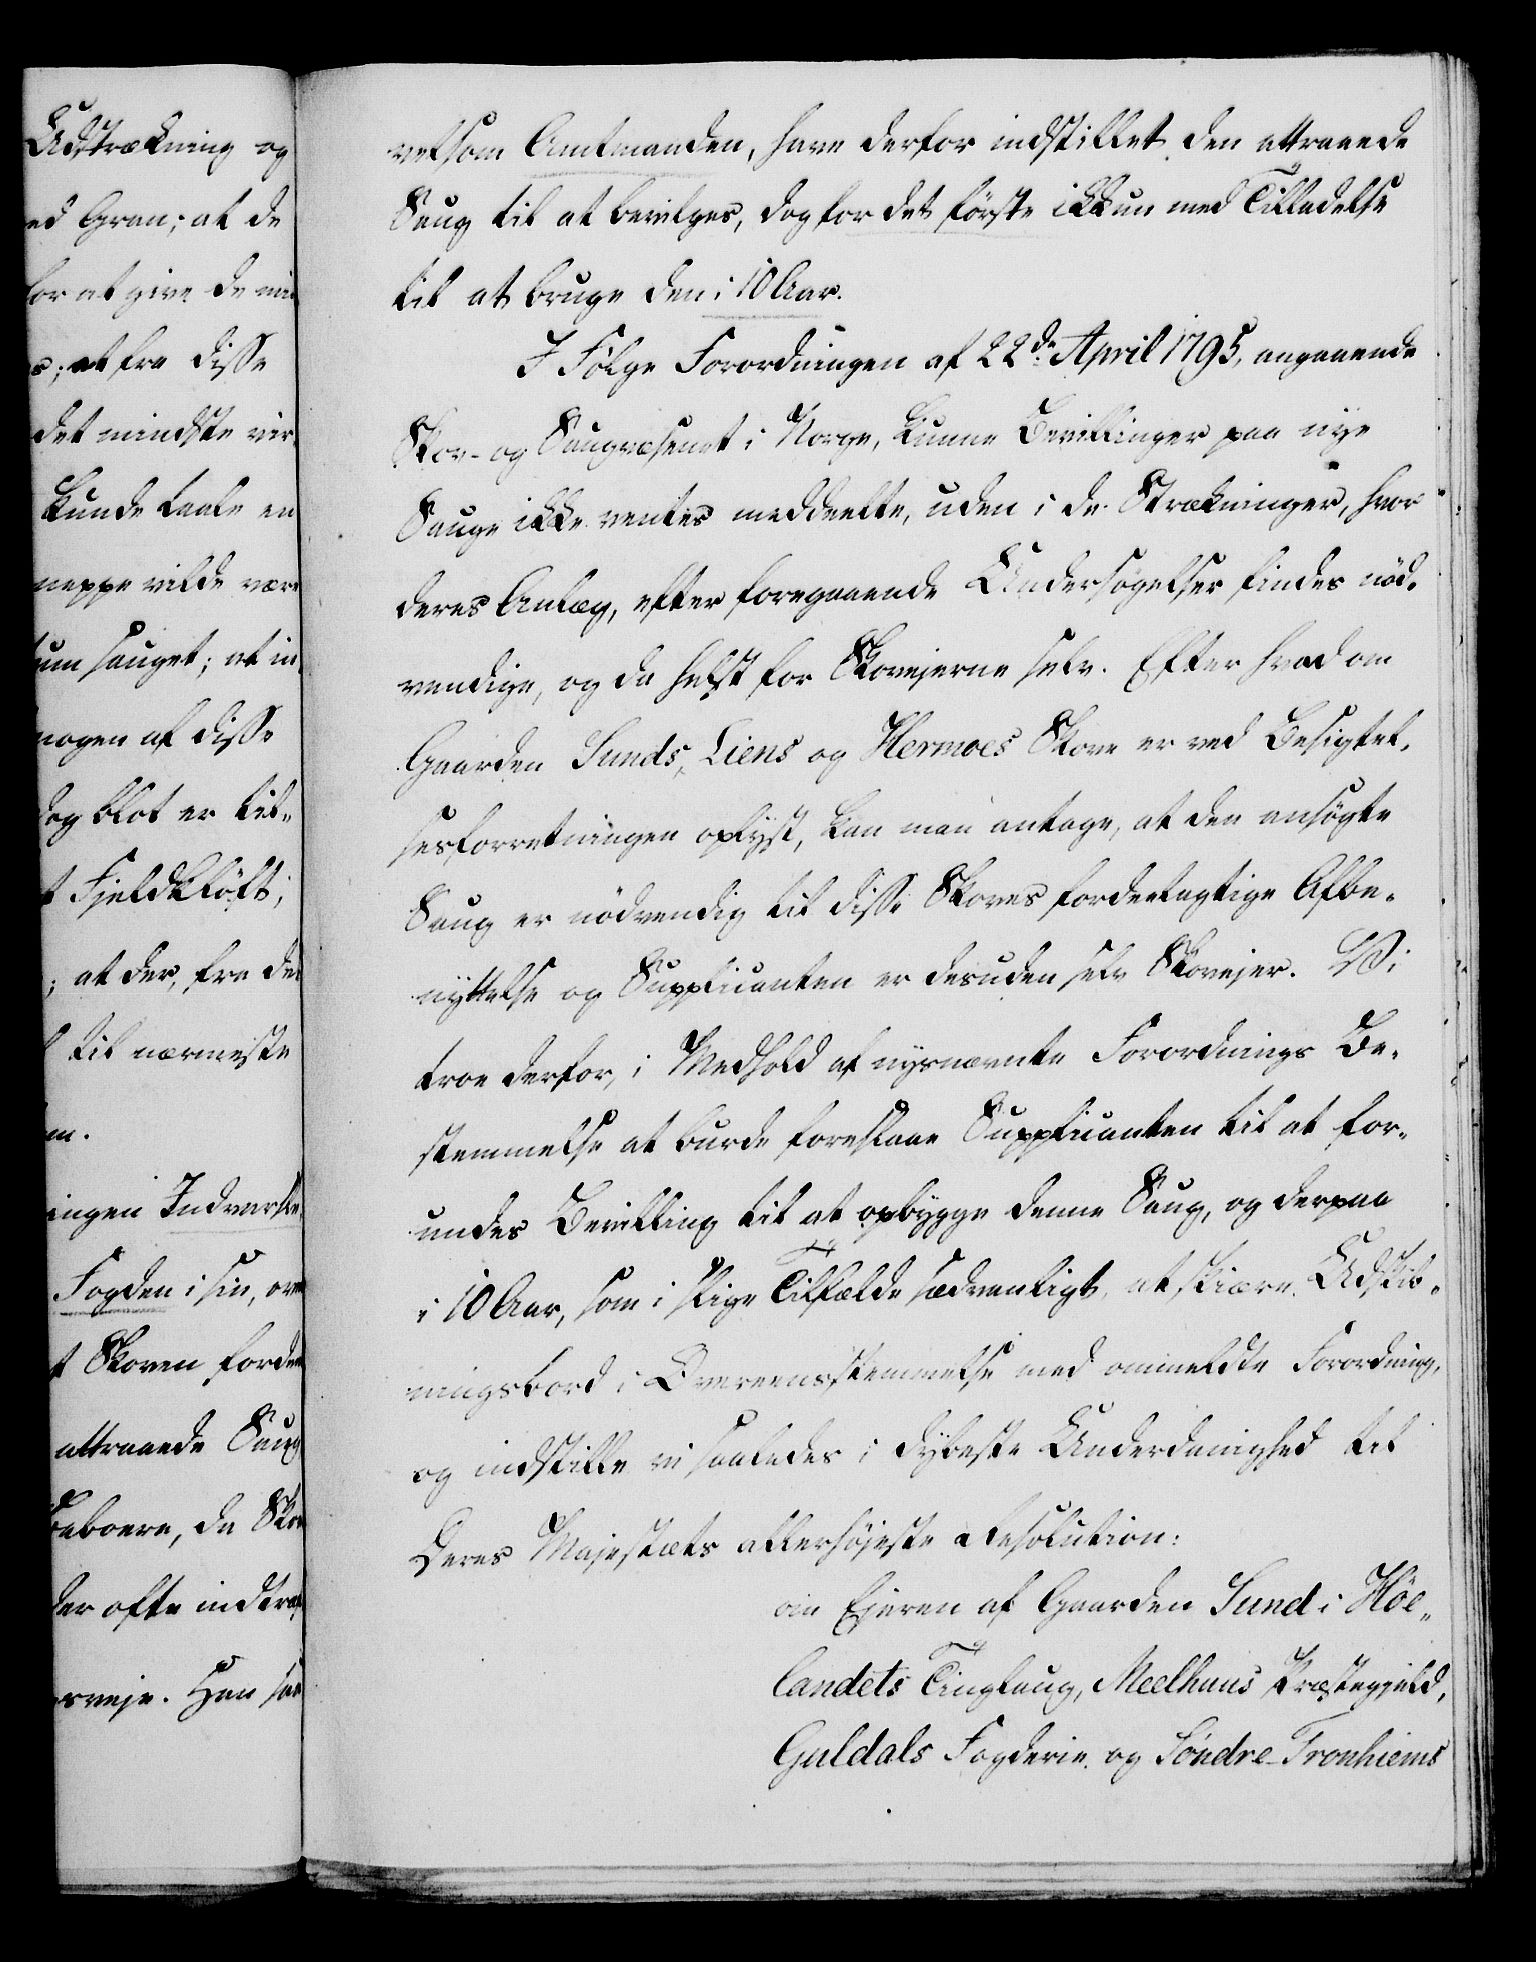 Udstrækning og
ed Gran; at de
for at give de
at fra disse
det mindste
kunde taale en
neppe vilde være
sauget; at
nogen af disse
dog blot er til-
Fjeldkløft;
; at der, fra
til nærmeste
ingen
Fogden i sin,
Skoven
attraaede Saug
da
der ofte
Han
velsom Amtmanden, have derfor indstillet den attraaede
Saug til at bevilges, dog for det første ikkun med Tilladelse
til at bruge den i 10 Aar.
I Følge Forordningen af 22de April 1795, angaaende
Skov- og Saugvæsenet i Norge, kunne Bevillinger paa nye
Sauge ikke ventes meddeelte, uden i de Strækninger, hvor
deres Anlæg, efter foregaaende Undersøgelser findes nød-
vendige, og da helst for Skovejerne selv. Efter hvad om
Gaarden Sunds, Liens og Hermoes Skove er ved Besigtel-
sesforretningen oplyst, kan man antage, at den ansøgte
Saug er nødvendig til disse Skoves fordeelagtige Afbe-
nyttelse og Supplicanten er desuden selv Skovejer. Vi
troe derfor, i Medhold af nysnævnte Forordnings Be-
stemmelse at burde foreslaae Supplicanten til at for-
undes Bevilling til at opbygge denne Saug, og derpaa
i 10 Aar, som i slige Tilfælde sædvanligt, at skiære Udskib-
ningsbord i Overeensstemmelse med ommeldte Forordning,
og indstille vi saaledes i dybeste Underdanighed til
Deres Majestæts allerhøjeste Resolution:
om Ejeren af Gaarden Sund i Höe-
landets Tinglaug, Meelhuus Præstegjeld,
Guldals Fogderie og Söndre-Tronhiems